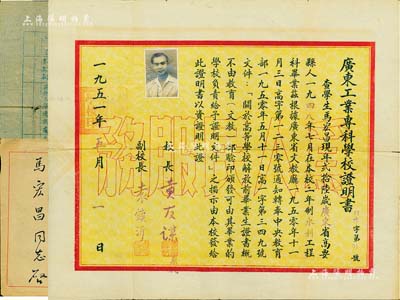 廣東工業專科學校證明書
字第 號
查學生馬宏昌現年貳拾陸歲廣東省高要
縣人一九四八年七月在本校三年制 科工程
科畢業茲根據廣東省文教廳一九五〇年十一
月三日高字第一二三零號通知轉奉中央教育
部一九五〇年五月十一日高一字第三四九號
文件：「關於高等學校解放前畢業生證書概
不由教育（文教）部驗印頒發可由其畢業的
學校負責給予證明文件」之指示由本校發給
此證明書以資證明此證
校長 黃友謀
副校長
一九五一年五月一日
馬宏昌同志啓